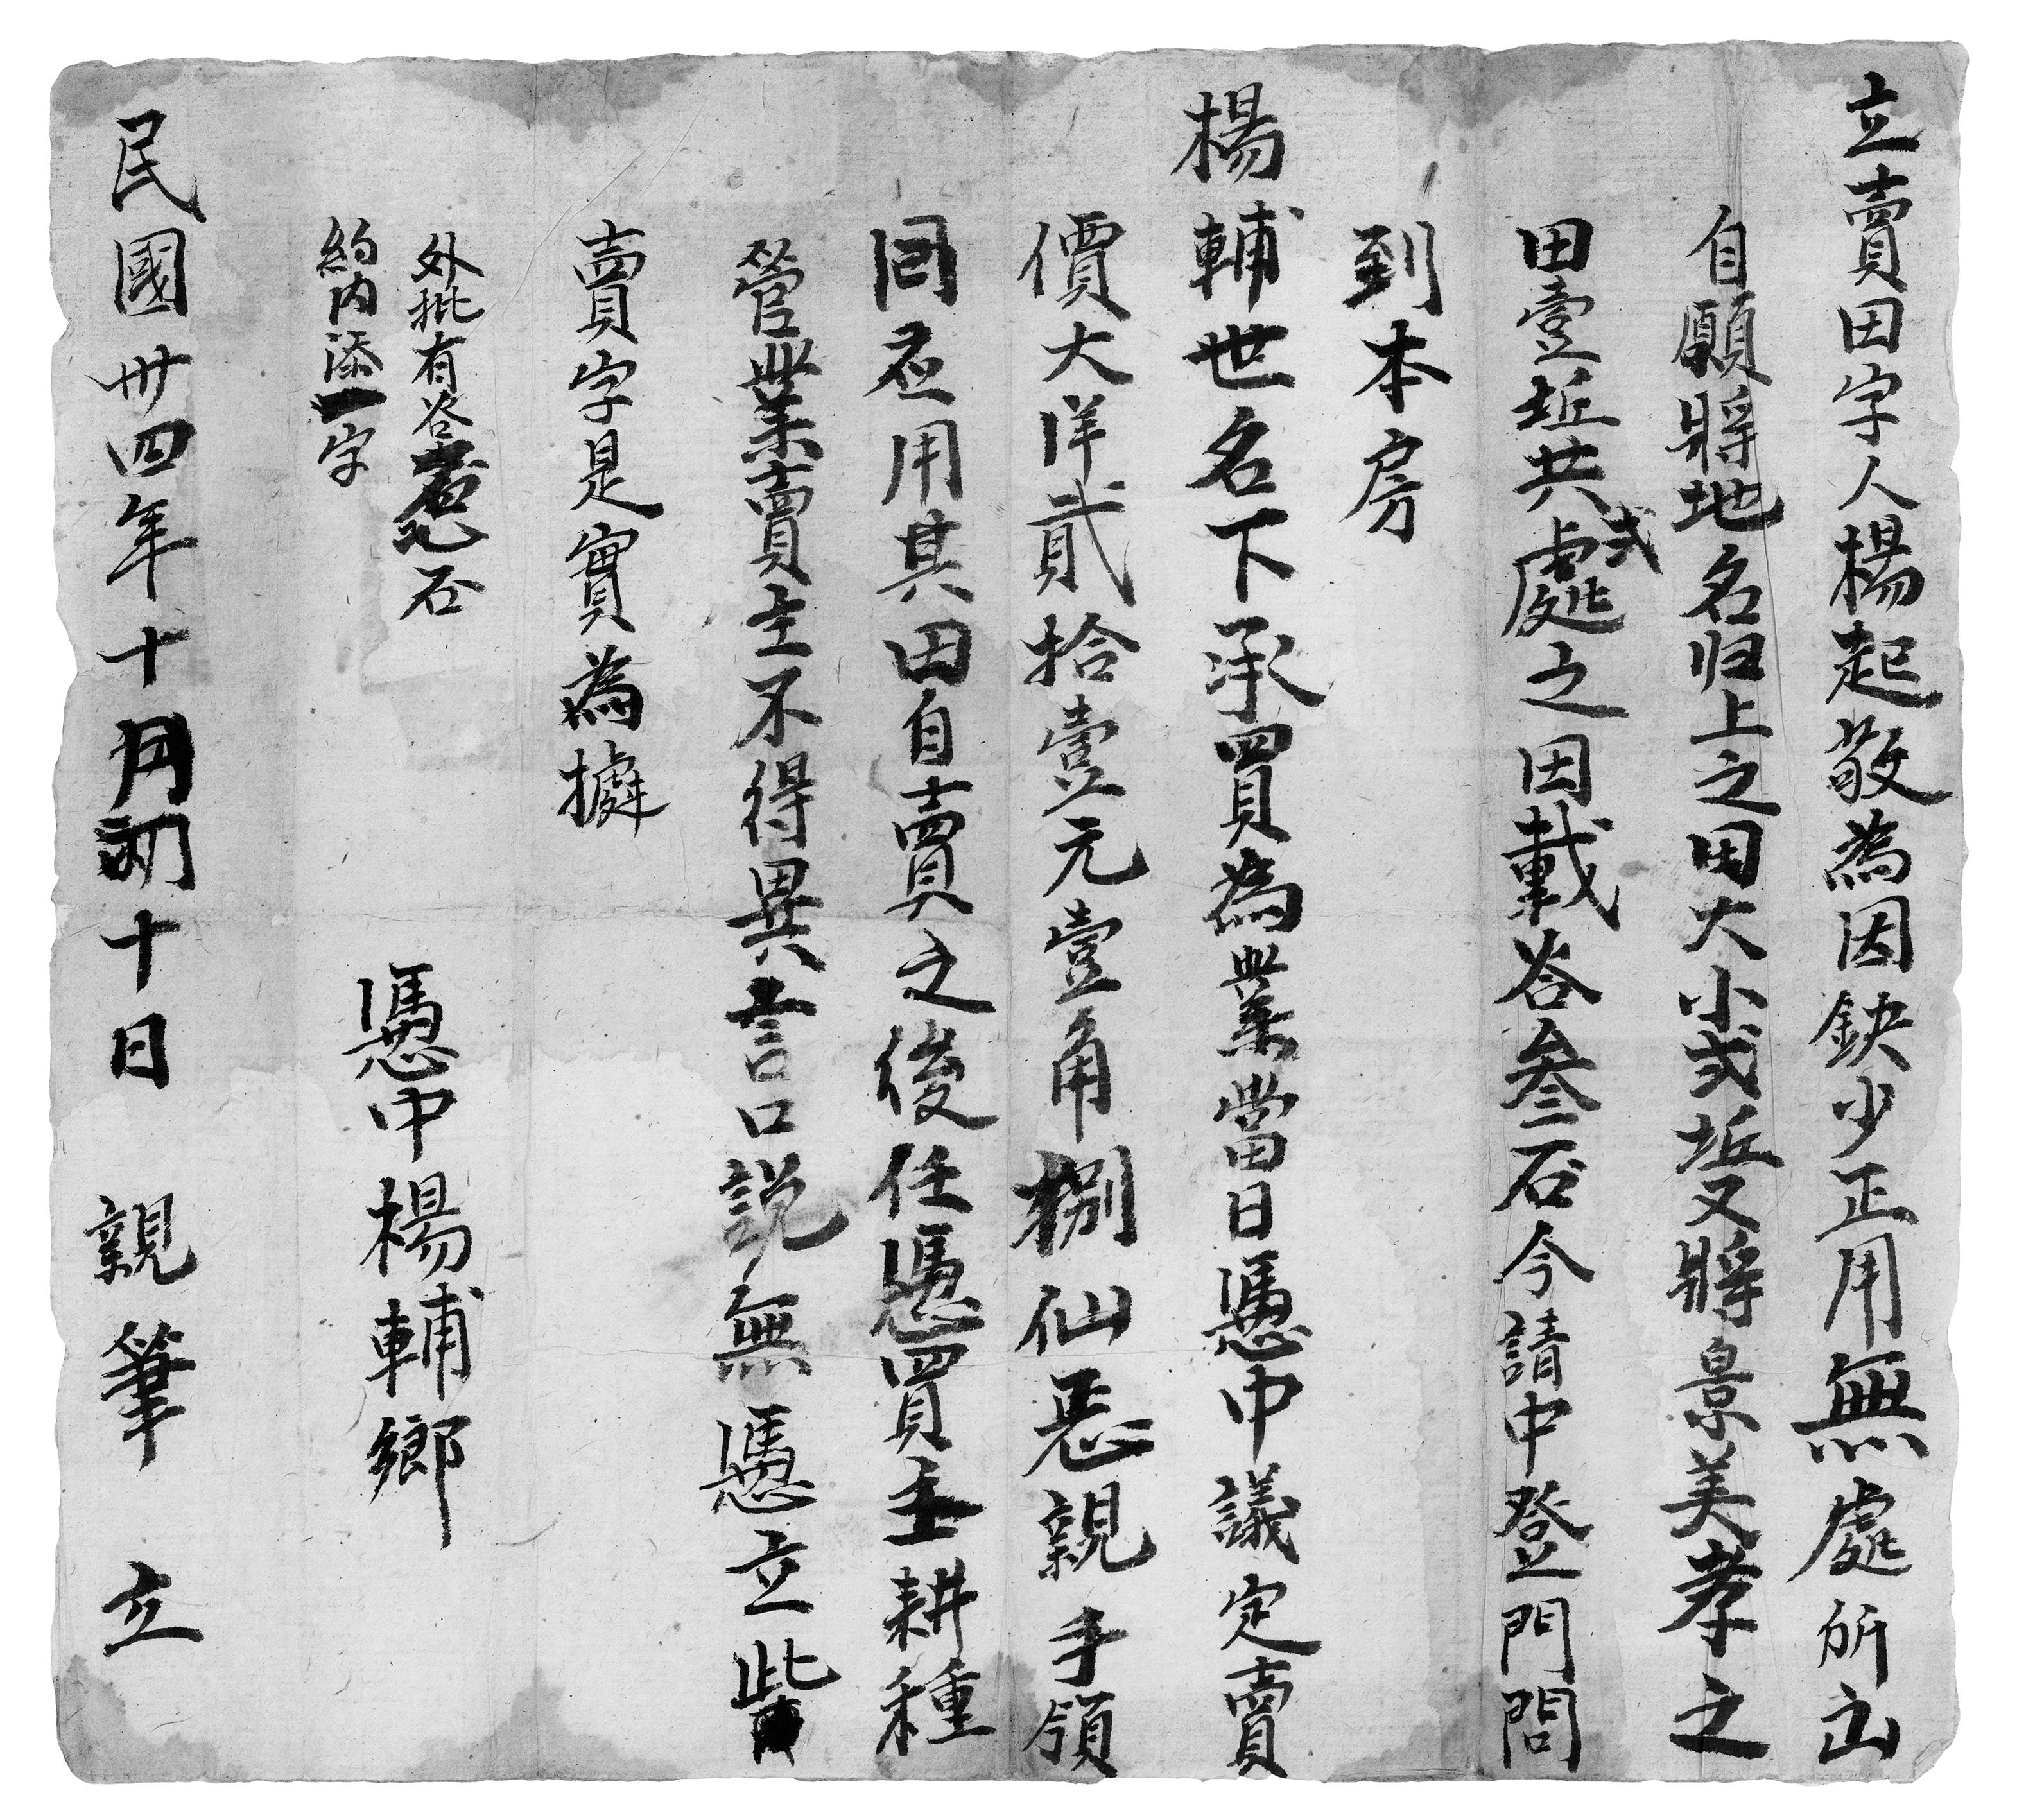 立賣田字人楊起敬為因缺少正用無處所出
自願將地名归上之田大小弍坵又將景美孝之
田壹坵共弍處之田載谷叁石今請中登門問
到本房
楊輔世名下承買為業當日憑中議定賣
價大洋貳拾壹元壹角捌仙㤙親手領
回应用其田自賣之後任憑買主耕種
營業賣主不得異言口説無憑立此
賣字是實為據
外批有谷 石
約内添一字
憑中楊輔鄉
民國卅四年十月初十日親筆立